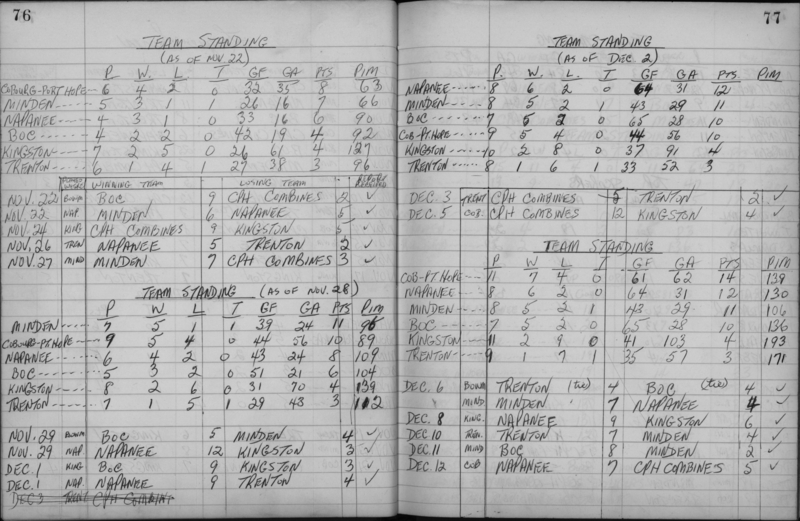 76
TEAM STANDING
(AS OF NOV. 22)
P. W. L T GF GA PTS PIM
COBOURG-PORT HOPE - 6 4 2 0 32 35 8 63
MINDEN ----- 5 3 1 1 26 16 7 66
NAPANEE ---- 4 3 1 0 33 16 6 90
BOC ----- 4 2 2 0 42 19 4 92
KINGSTON ---- 7 2 5 0 26 61 4 127
TRENTON ---- 6 1 4 1 27 38 3 96
WINNING TEAM LOSING TEAM
NOV. 22 BOWM BOC 9 CPH COMBINES 2 ✓
NOV. 22 NAP. MINDEN 6 NAPANEE 5 ✓
NOV. 24 KING CPH COMBINES 9 KINGSTON 5 ✓
NOV. 26 TREN NAPANEE 5 TRENTON 2 ✓
NOV. 27 MIND MINDEN 7 CPH COMBINES 3 ✓
TEAM STANDING (AS OF NOV. 28)
P. W L T GF GA PTS PIM
MINDEN ---- 7 5 1 1 39 24 11 95
COBOURG-PT HOPE -- 9 5 4 0 44 56 10 89
NAPANEE ---- 6 4 2 0 43 24 8 109
BOC ---- 5 3 2 0 51 21 6 104
KINGSTON ---- 8 2 6 0 31 70 4 139
TRENTON ---- 7 1 5 1 29 43 3 112
NOV. 29 BOWM BOC 5 MINDEN 4 ✓
NOV. 29 NAP NAPANEE 12 KINGSTON 3 ✓
DEC. 1 KING BOC 9 KINGSTON 3 ✓
DEC. 1 NAP. NAPANEE 9 TRENTON 4 ✓
DEC 3 TRENT CPH COMBIN
77
TEAM STANDING
(AS OF DEC. 2)
P. W. L. T GF GA PTS. PIM
NAPANEE ---- 8 6 2 0 64 31 12
MINDEN ---- 8 5 2 1 43 29 11
BOC ---- 7 5 2 0 65 28 10
COB-PT HOPE ---- 9 5 4 0 44 56 10
KINGSTON ---- 10 2 8 0 37 91 4
TRENTON ---- 8 1 6 1 33 52 3
DEC. 3 TRENT CPH COMBINES 5 TRENTON 2 ✓
DEC. 5 COB. CPH COMBINES 12 KINGSTON 4 ✓
TEAM STANDING
P W L T GF GA PTS PIM
COB-PT HOPE --- 11 7 4 0 61 62 14 139
NAPANEE ---- 8 6 2 0 64 31 12 130
MINDEN ---- 8 5 2 1 43 29 11 106
BOC ---- 7 5 2 0 65 28 10 136
KINGSTON ---- 11 2 9 0 41 103 4 193
TRENTON ---- 9 1 7 1 35 57 3 171
DEC. 6 BOWM TRENTON (tie) 4 BOC (tie) 4 ✓
" MIND MINDEN 7 NAPANEE 4 ✓
DEC. 8 KING. NAPANEE 9 KINGSTON 6 ✓
DEC. 10 TREN. TRENTON 7 MINDEN 4 ✓
DEC. 11 MIND BOC 8 MINDEN 2 ✓
DEC. 12 COB NAPANEE 7 CPH COMBINES 5 ✓